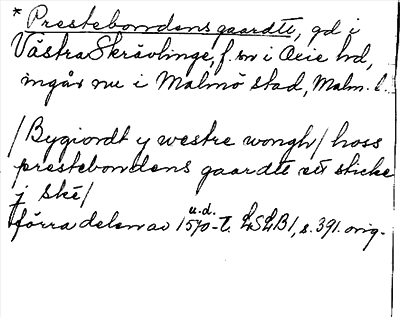 * Prestebondens gaardtt, gd i
Västra Skrävlinge, f. sn i Oxie hd,
ingår nu i Malmö stad, Malm. l.
/Bygiordt y westre wongh/ hoss
prestebondens gaardtt ett sticke
j ske/
u.d.
förra delen av 1570-t. LSLB1, s. 391. orig.